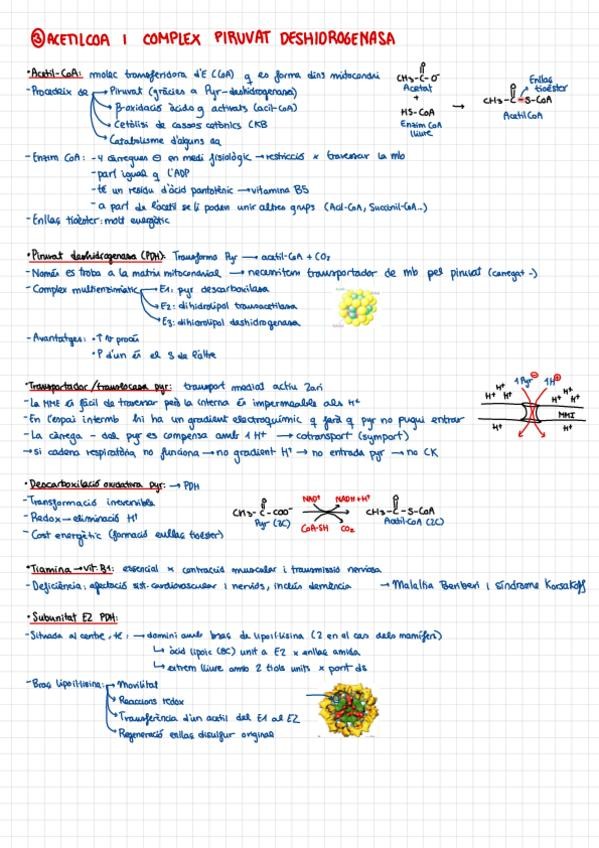 ③ ACETILCOA I COMPLEX PIRUVAT DESHIDROGENASA
• Acetil-CoA: molec transferidora d'E (CoA) q es forma dins mitocondri
- Procedeix de → Piruvat (gràcies a Pyr-deshidrogenasa)
→ β-oxidació àcids g activats (acil-CoA)
→ Cetòlisi de cossos cetònics CKB
→ Catabolisme d'alguns aa
CH₃-C-O⁻
O
Acetat
+
HS-CoA
Enzim CoA
lliure
→
Enllaç
tioèster
O
CH₃-C-S-CoA
Acetil CoA
- Enzim CoA: -4 càrregues ⊖ en medi fisiològic → restricció x travessar la mb
- part igual q l'ADP
- té un residu d'àcid pantotènic → vitamina B5
- a part de l'acetil se li poden unir altres grups (Acil-CoA, Succinil-CoA..)
- Enllaç tioèster: molt energètic
• Piruvat deshidrogenasa (PDH): Transforma Pyr → acetil-CoA + CO₂
- Només es troba a la matriu mitocondrial → necessitem transportador de mb pel piruvat (carregat -)
- Complex multienzimàtic → E1: pyr descarboxilasa
→ E2: dihidrolipoil transacetilasa
→ E3: dihidrolipoil deshidrogenasa
- Avantatges: • ↑ V procés
• P d'un és el S de l'altre
• Transportador/translocasa pyr: transport mediat actiu 2ari
- La MME és fàcil de travessar però la interna és impermeable als H⁺
- En l'espai intermb hi ha un gradient electroquímic q farà q pyr no pugui entrar
- La càrrega - del pyr es compensa amb 1 H⁺ → cotransport (symport)
→ si cadena respiratòria no funciona → no gradient H⁺ → no entrada pyr → no CK
1 Pyr ⊖ 1H ⊕
H⁺ H⁺ H⁺ H⁺ H⁺ H⁺
MMI
H⁺ H⁺
• Descarboxilació oxidativa pyr: → PDH
- Transformació irreversible
- Redox → eliminació H⁺
- Cost energètic (formació enllaç tioèster)
O
CH₃-C-COO⁻
Pyr (3C)
NAD⁺ NADH+H⁺
CoA-SH CO₂
O
CH₃-C-S-CoA
Acetil-CoA (2C)
• Tiamina → Vit. B1: essencial x contracció muscular i transmissió nerviosa
- Deficiència: afectació sist. cardiovascular i nerviós, inclús demència → Malaltia Beriberi i Síndrome Korsakoff
• Subunitat E2 PDH:
- Situada al centre, té: → domini amb braç de lipoil·lisina (2 en el cas dels mamífers)
↳ àcid lipoic (8C) unit a E2 x enllaç amida
↳ extrem lliure amb 2 tiols units x pont ds
- Braç lipoil·lisina: → Movilitat
→ Reaccions redox
→ Transferència d'un acetil del E1 al E2
→ Regeneració enllaç disulfur original